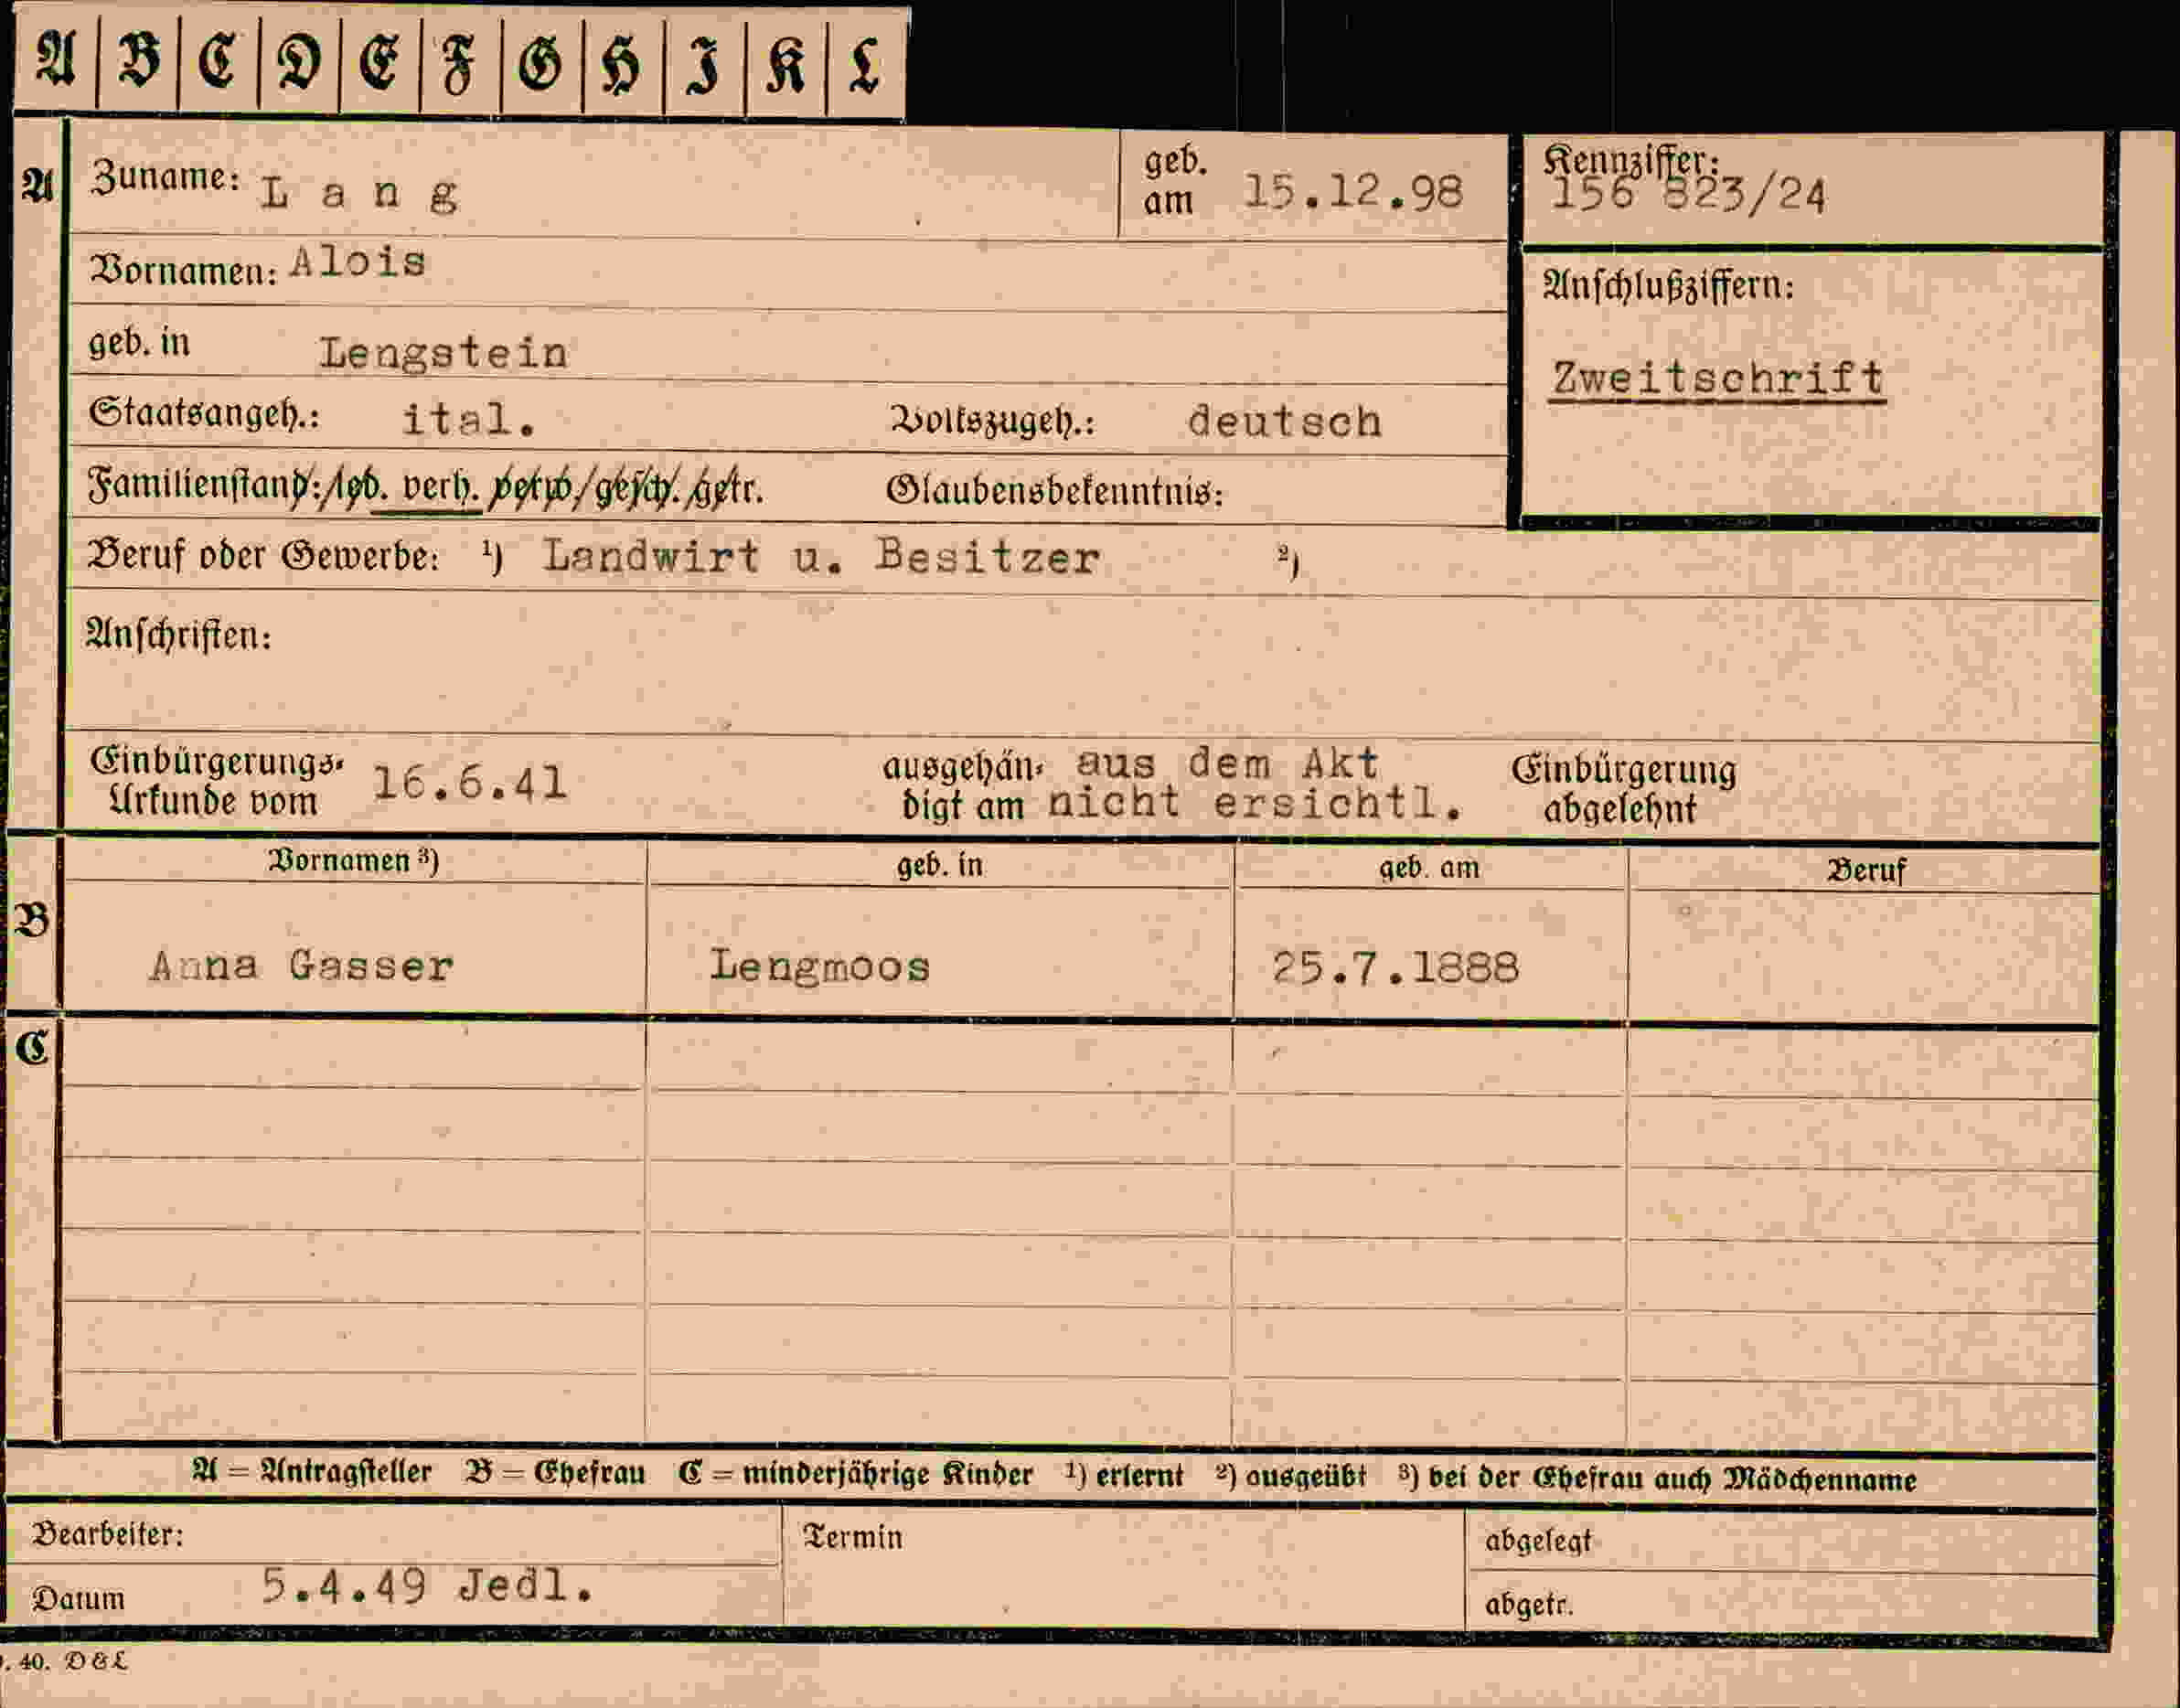 A B C D E F G H I K L
A Zuname: Lang geb. am 15.12.98 Kennziffer: 156 823/24
Vornamen: Alois
Anschlußziffern:
geb. in Lengstein
Zweitschrift
Staatsangeh.: ital. Volkszugeh.: deutsch
Familienstand: led. verh. verw. gesch. getr. Glaubensbekenntnis:
Beruf oder Gewerbe: ¹) Landwirt u. Besitzer ²)
Anschriften:
Einbürgerungs- ausgehän- aus dem Akt Einbürgerung
Urkunde vom 16.6.41 digt am nicht ersichtl. abgelehnt
Vornamen ³) geb. in geb. am Beruf
B
Anna Gasser Lengmoos 25.7.1888
C
A = Antragsteller B = Ehefrau C = minderjährige Kinder ¹) erlernt ²) ausgeübt ³) bei der Ehefrau auch Mädchenname
Bearbeiter: Termin abgelegt
Datum 5.4.49 Jedl. abgetr.
. 40. D & L